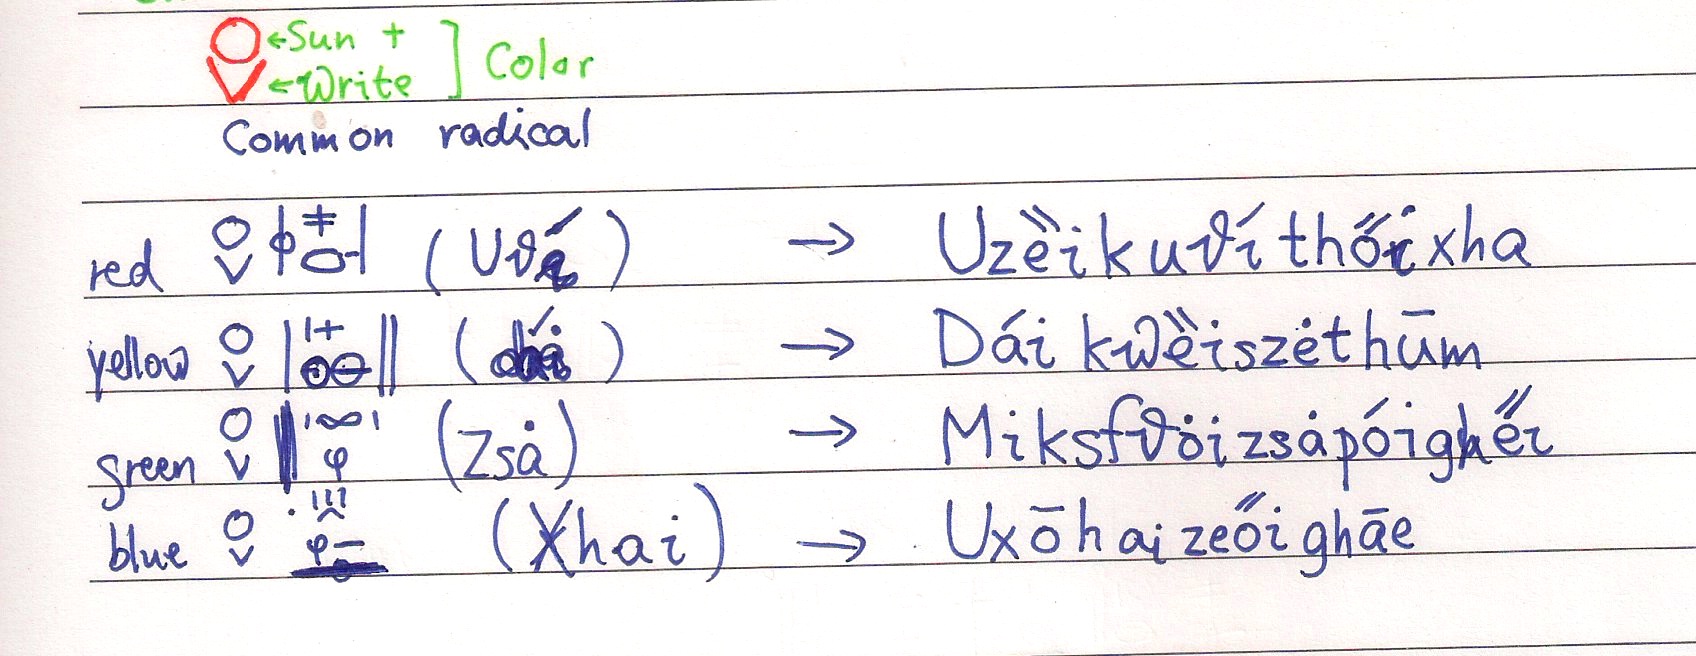 ←Sun +
←Write ] Color
Common radical
red ( ) → Uzȅikuϑíthőixha
yellow ( ) → Dáikwȅiszėthūm
green (Zsȧ) → Miksfϑȯizsȧpóighe̋i
blue (Xhai) → Uxōhaizeőighāe